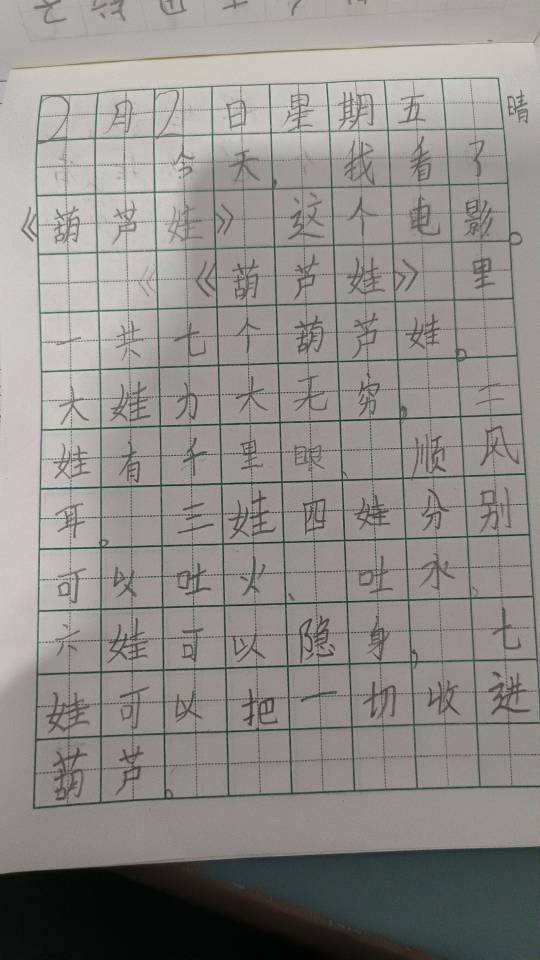 2月2日星期五 晴
今天，我看了
《葫芦娃》这个电影。
《葫芦娃》里
一共七个葫芦娃。
大娃力大无穷，二
娃有千里眼、顺风
耳。三娃四娃分别
可以吐火、吐水、
六娃可以隐身，七
娃可以把一切收进
葫芦。